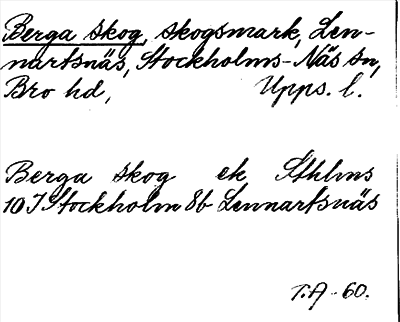 Berga skog, skogsmark, Len-
nartsnäs, Stockholms-Näs sn,
Bro hd, Upps. l.
Berga skog ek Sthlms
10I Stockholm 8b Lennartsnäs
T.A -60.